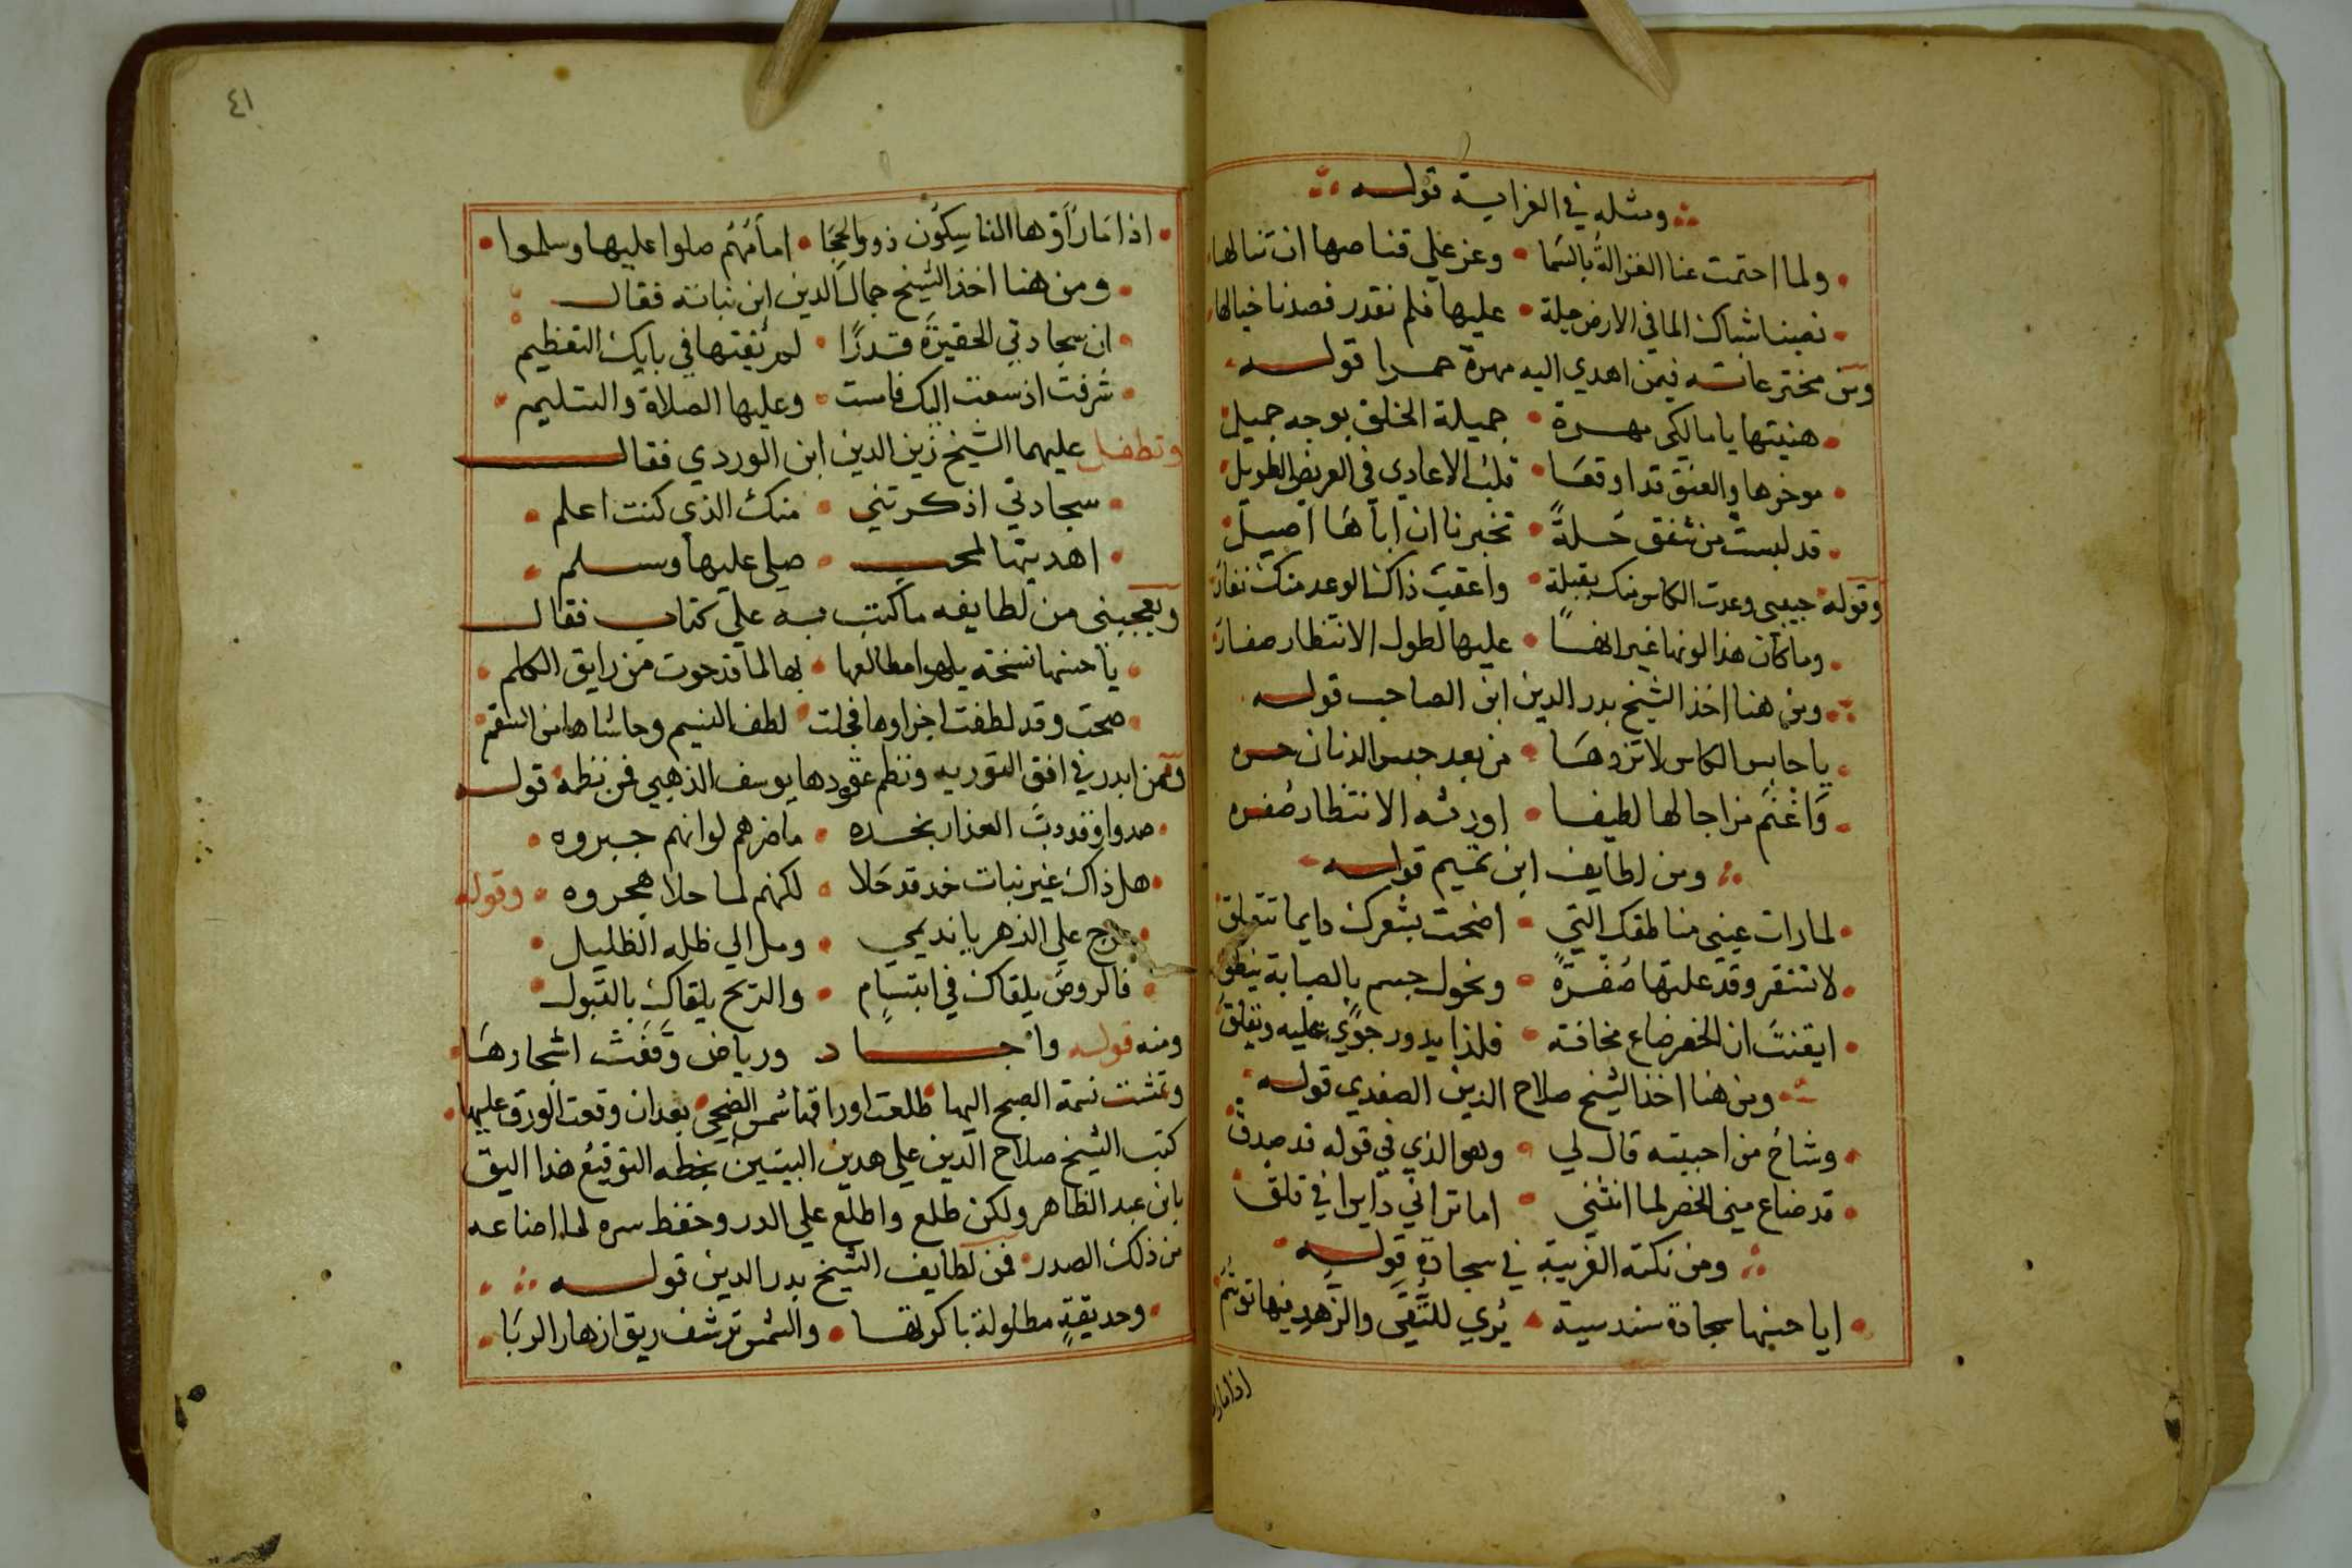 ومثله في الغرابة قوله
ولما احتمت عنا الغزالة بالسما • وعز علي قناصها ان تنالها
نصبنا شباك الما في الارض حيلة • عليها فلم نقدر فصدنا خيالها
ومن مخترعاته فيمن اهدي اليه مهرة حمرا قوله
هنيتها يا مالكي مهرة • جميلة الخلق بوجه جميل
موخرها والعنق قد اوقعا • قلب الاعادي في العريض الطويل
قد لبست من شفق حلة • تخبرنا ان اباها اصيل
وقوله حبيبي وعدت الكاس منك بقبلة • واعقب ذاك الوعد منك نفار
وما كان هذا لونها غير انها • عليها لطول الانتظار صفار
ومن هنا اخذ الشيخ بدر الدين ابن الصاحب قوله
يا حابس الكاس لا تزدها • من بعد حبس الدنان حسره
واغنم مزاجا لها لطيفا • اورثه الانتظار صفره
ومن لطايف ابن تميم قوله
لما رات عيني مناطقك التي • اضحت بشعرك دايما تتعلق
لا تستقر وقد علتها صفرة • ونحول جسم بالصبابة ينطق
ايقنت ان الخصر ضاع مخافة • فلذا يدور جوي عليه ويقلق
ومن هنا اخذ الشيخ صلاح الدين الصفدي قوله
وشاح من احببته قال لي • وهو الذي في قوله قد صدق
قد ضاع مني الخصر لما انثني • اما تراني دايرا في قلق
ومن نكته الغريبة في سجادة قوله
ايا حسنها سجادة سندسية • يري للتقي والزهد فيها توسم
اذا ما را
٤١
اذا ما راوها الناسكون ذوو الحجا • امامهم صلوا عليها وسلموا
ومن هنا اخذ الشيخ جمال الدين ابن نباتة فقال
ان سجادتي الحقيرة قدرا • لم يفتها في بابك التعظيم
شرفت اذ سعت اليك فامست • وعليها الصلاة والتسليم
وتطفل عليهما الشيخ زين الدين ابن الوردي فقال
سجادتي اذكرتني • منك الذي كنت اعلم
اهديتها لمحب • صلي عليها وسلم
ويعجبني من لطايفه ما كتب به علي كتاب فقال
يا حسنها نسخة يلهوا مطالعها • بها لما قد حوت من رايق الكلم
صحت وقد لطفت اجزاوها فحلت • لطف النسيم وحاشاها من السقم
وممن ابدر في افق التوريه ونظم عقودها يوسف الذهبي فمن نظمه قوله
صدوا وقد دب العذار بخده • ما ضرهم لو انهم جبروه
هل ذاك غير نبات خد قد حلا • لكنهم لما حلا هجروه • وقوله
عرج علي الزهر يا نديمي • ومل الي ظله الظليل
فالروض يلقاك في ابتسام • والريح يلقاك بالقبول
ومنه قوله واجاد ورياض وقفت اشجارها
وتمشت نسمة الصبح اليها • طلعت اوراقها شمس الضحي • بعد ان وقعت الورق عليها
كتب الشيخ صلاح الدين علي هدين البيتين بخطه التوقيع هذا اليق
بابن عبد الظاهر ولكن طلع واطلع علي الدر وحفظ سره لما اضاعه
من ذلك الصدر • فمن لطايف الشيخ بدر الدين قوله
وحديقة مطلولة باكرتها • والشمس ترشف ريق ازهار الربا